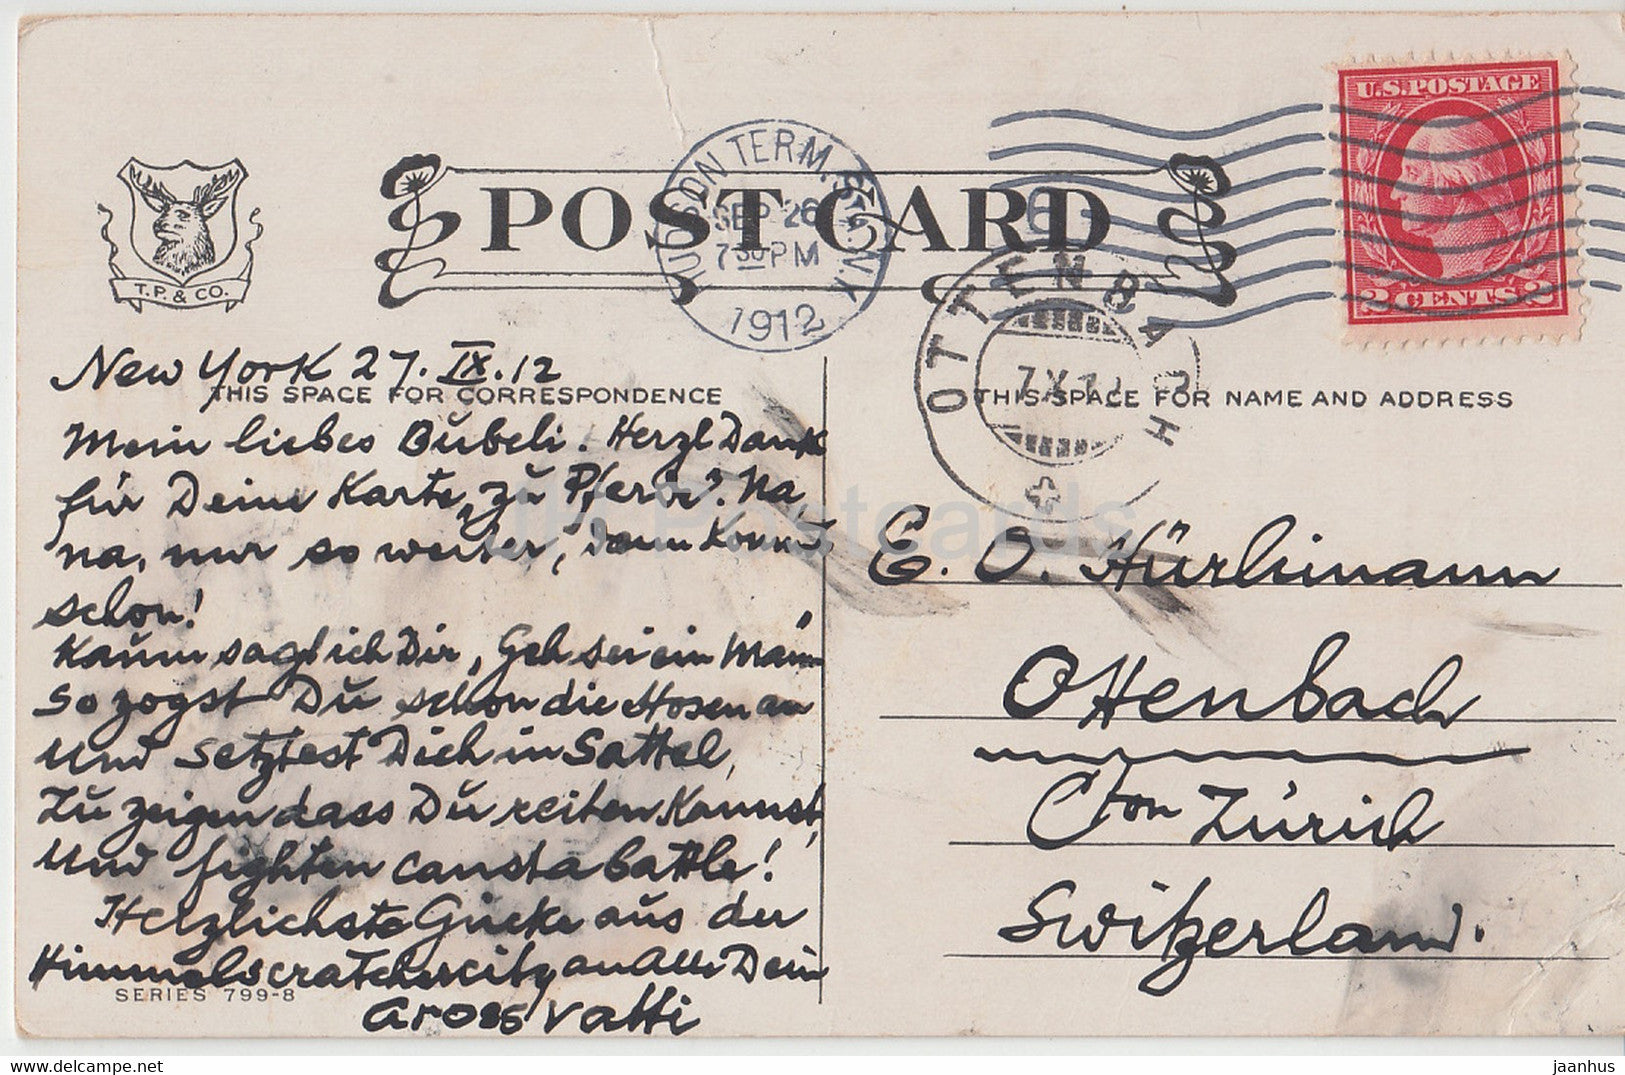 POST CARD
T. P. & CO.
HUDSON TERM. STA. N.Y.
SEP 26
7 30 PM
1912
U.S. POSTAGE
2 CENTS 2
OTTENBACH
7. X. 12
THIS SPACE FOR CORRESPONDENCE
THIS SPACE FOR NAME AND ADDRESS
New York 27. IX. 12
Mein liebes Bubeli. Herzl Dank
für Deine Karte „zu Pferd". Na,
na, nur so weiter, dann kommts
schon!
Kaum sagt ich Dir, Geh sei ein Mann
So zogst Du schon die Hosen an
Und setztest Dich in Sattel,
Zu zeigen dass Du reiten kannst,
Und fighten canst a battle!
Herzlichste Grüsse aus der
Himmelscratchercity an Alle Dein
Grossvatti
SERIES 799-8
E. O. Hürlimann
Ottenbach
Cton Zürich
Switzerland.
JH Postcards
jaanhus